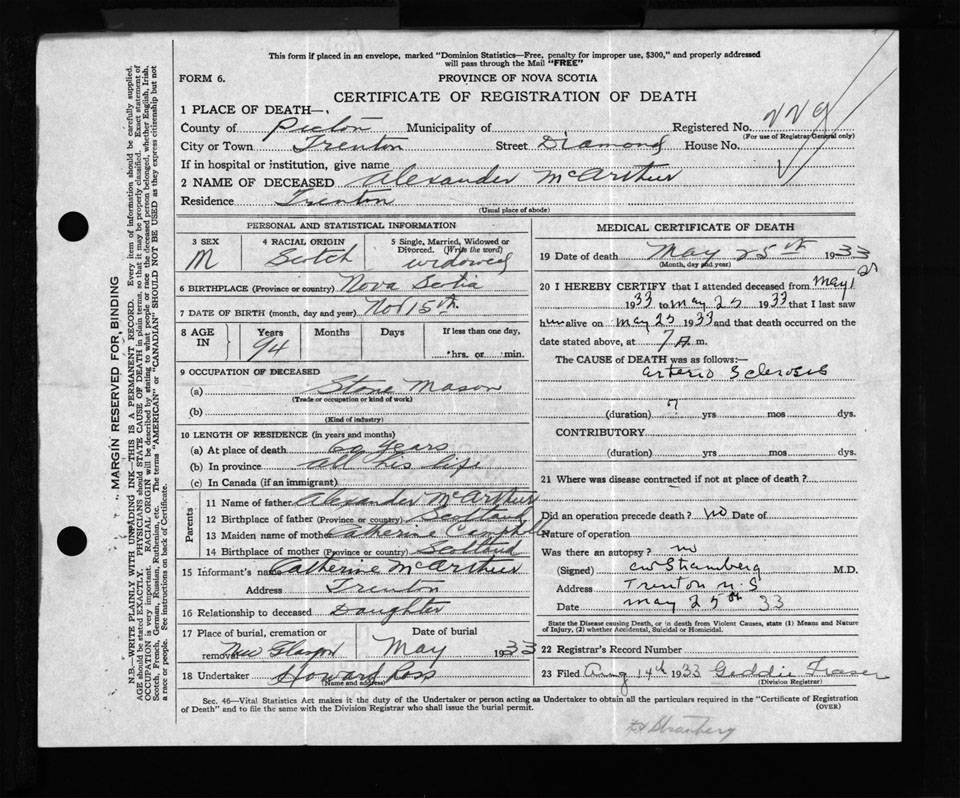 This form if placed in an envelope, marked "Dominion Statistics—Free, penalty for improper use, $300," and properly addressed
will pass through the Mail "FREE"
FORM 6.
PROVINCE OF NOVA SCOTIA
CERTIFICATE OF REGISTRATION OF DEATH
1 PLACE OF DEATH—
County of Pictou Municipality of Registered No. 229
(For use of Registrar General only)
City or Town Trenton Street Diamond House No.
If in hospital or institution, give name
2 NAME OF DECEASED Alexander McArthur
Residence Trenton
(Usual place of abode)
PERSONAL AND STATISTICAL INFORMATION
3 SEX M
4 RACIAL ORIGIN Scotch
5 Single, Married, Widowed or
Divorced. (Write the word)
widowed
6 BIRTHPLACE (Province or country) Nova Scotia
7 DATE OF BIRTH (month, day and year) Nov 15th.
8 AGE IN Years 94 Months Days If less than one day,
hrs. or min.
9 OCCUPATION OF DECEASED
(a) Stone Mason
(Trade or occupation or kind of work)
(b)
(Kind of industry)
10 LENGTH OF RESIDENCE (in years and months)
(a) At place of death 60 years
(b) In province all his life
(c) In Canada (if an immigrant)
Parents
11 Name of father Alexander McArthur
12 Birthplace of father (Province or country) Scotland
13 Maiden name of mother Catherine Campbell
14 Birthplace of mother (Province or country) Scotland
15 Informant's name Catherine McArthur
Address Trenton
16 Relationship to deceased Daughter
17 Place of burial, cremation or
removal New Glasgow
Date of burial
May 1933
18 Undertaker Howard Ross
(Name and address)
MEDICAL CERTIFICATE OF DEATH
19 Date of death May 25th 1933
(Month, day and year)
20 I HEREBY CERTIFY that I attended deceased from May 1
1933 to May 25 1933 that I last saw
him alive on May 25 1933 and that death occurred on
date stated above, at 7 A. m.
The CAUSE of DEATH was as follows:—
Arterio Sclerosis
(duration) ? yrs mos dys.
CONTRIBUTORY
(duration) yrs mos dys.
21 Where was disease contracted if not at place of death?
Did an operation precede death? no Date of
Nature of operation
Was there an autopsy? no
(Signed) M.D.
Address Trenton N.S
Date May 25th 33
State the Disease causing Death, or in death from Violent Causes, state (1) Means and Nature
of Injury, (2) whether Accidental, Suicidal or Homicidal.
22 Registrar's Record Number
23 Filed Aug 14th 1933 Geddie Fraser
(Division Registrar)
Sec. 46—Vital Statistics Act makes it the duty of the Undertaker or person acting as Undertaker to obtain all the particulars required in the "Certificate of Registration
of Death" and to file the same with the Division Registrar who shall issue the burial permit.
(OVER)
MARGIN RESERVED FOR BINDING
N.B.—WRITE PLAINLY WITH UNFADING INK—THIS IS A PERMANENT RECORD. Every item of information should be carefully supplied.
AGE should be stated EXACTLY. PHYSICIANS should STATE CAUSE OF DEATH in plain terms, so that it may be properly classified. Exact statement of
OCCUPATION is very important. RACIAL ORIGIN will be described by stating to what people or race the deceased person belonged, whether English, Irish,
Scotch, French, German, Russian, Ruthenian, etc. The terms "AMERICAN" or "CANADIAN" SHOULD NOT BE USED as they express citizenship but not
a race or people. See instructions on back of Certificate.